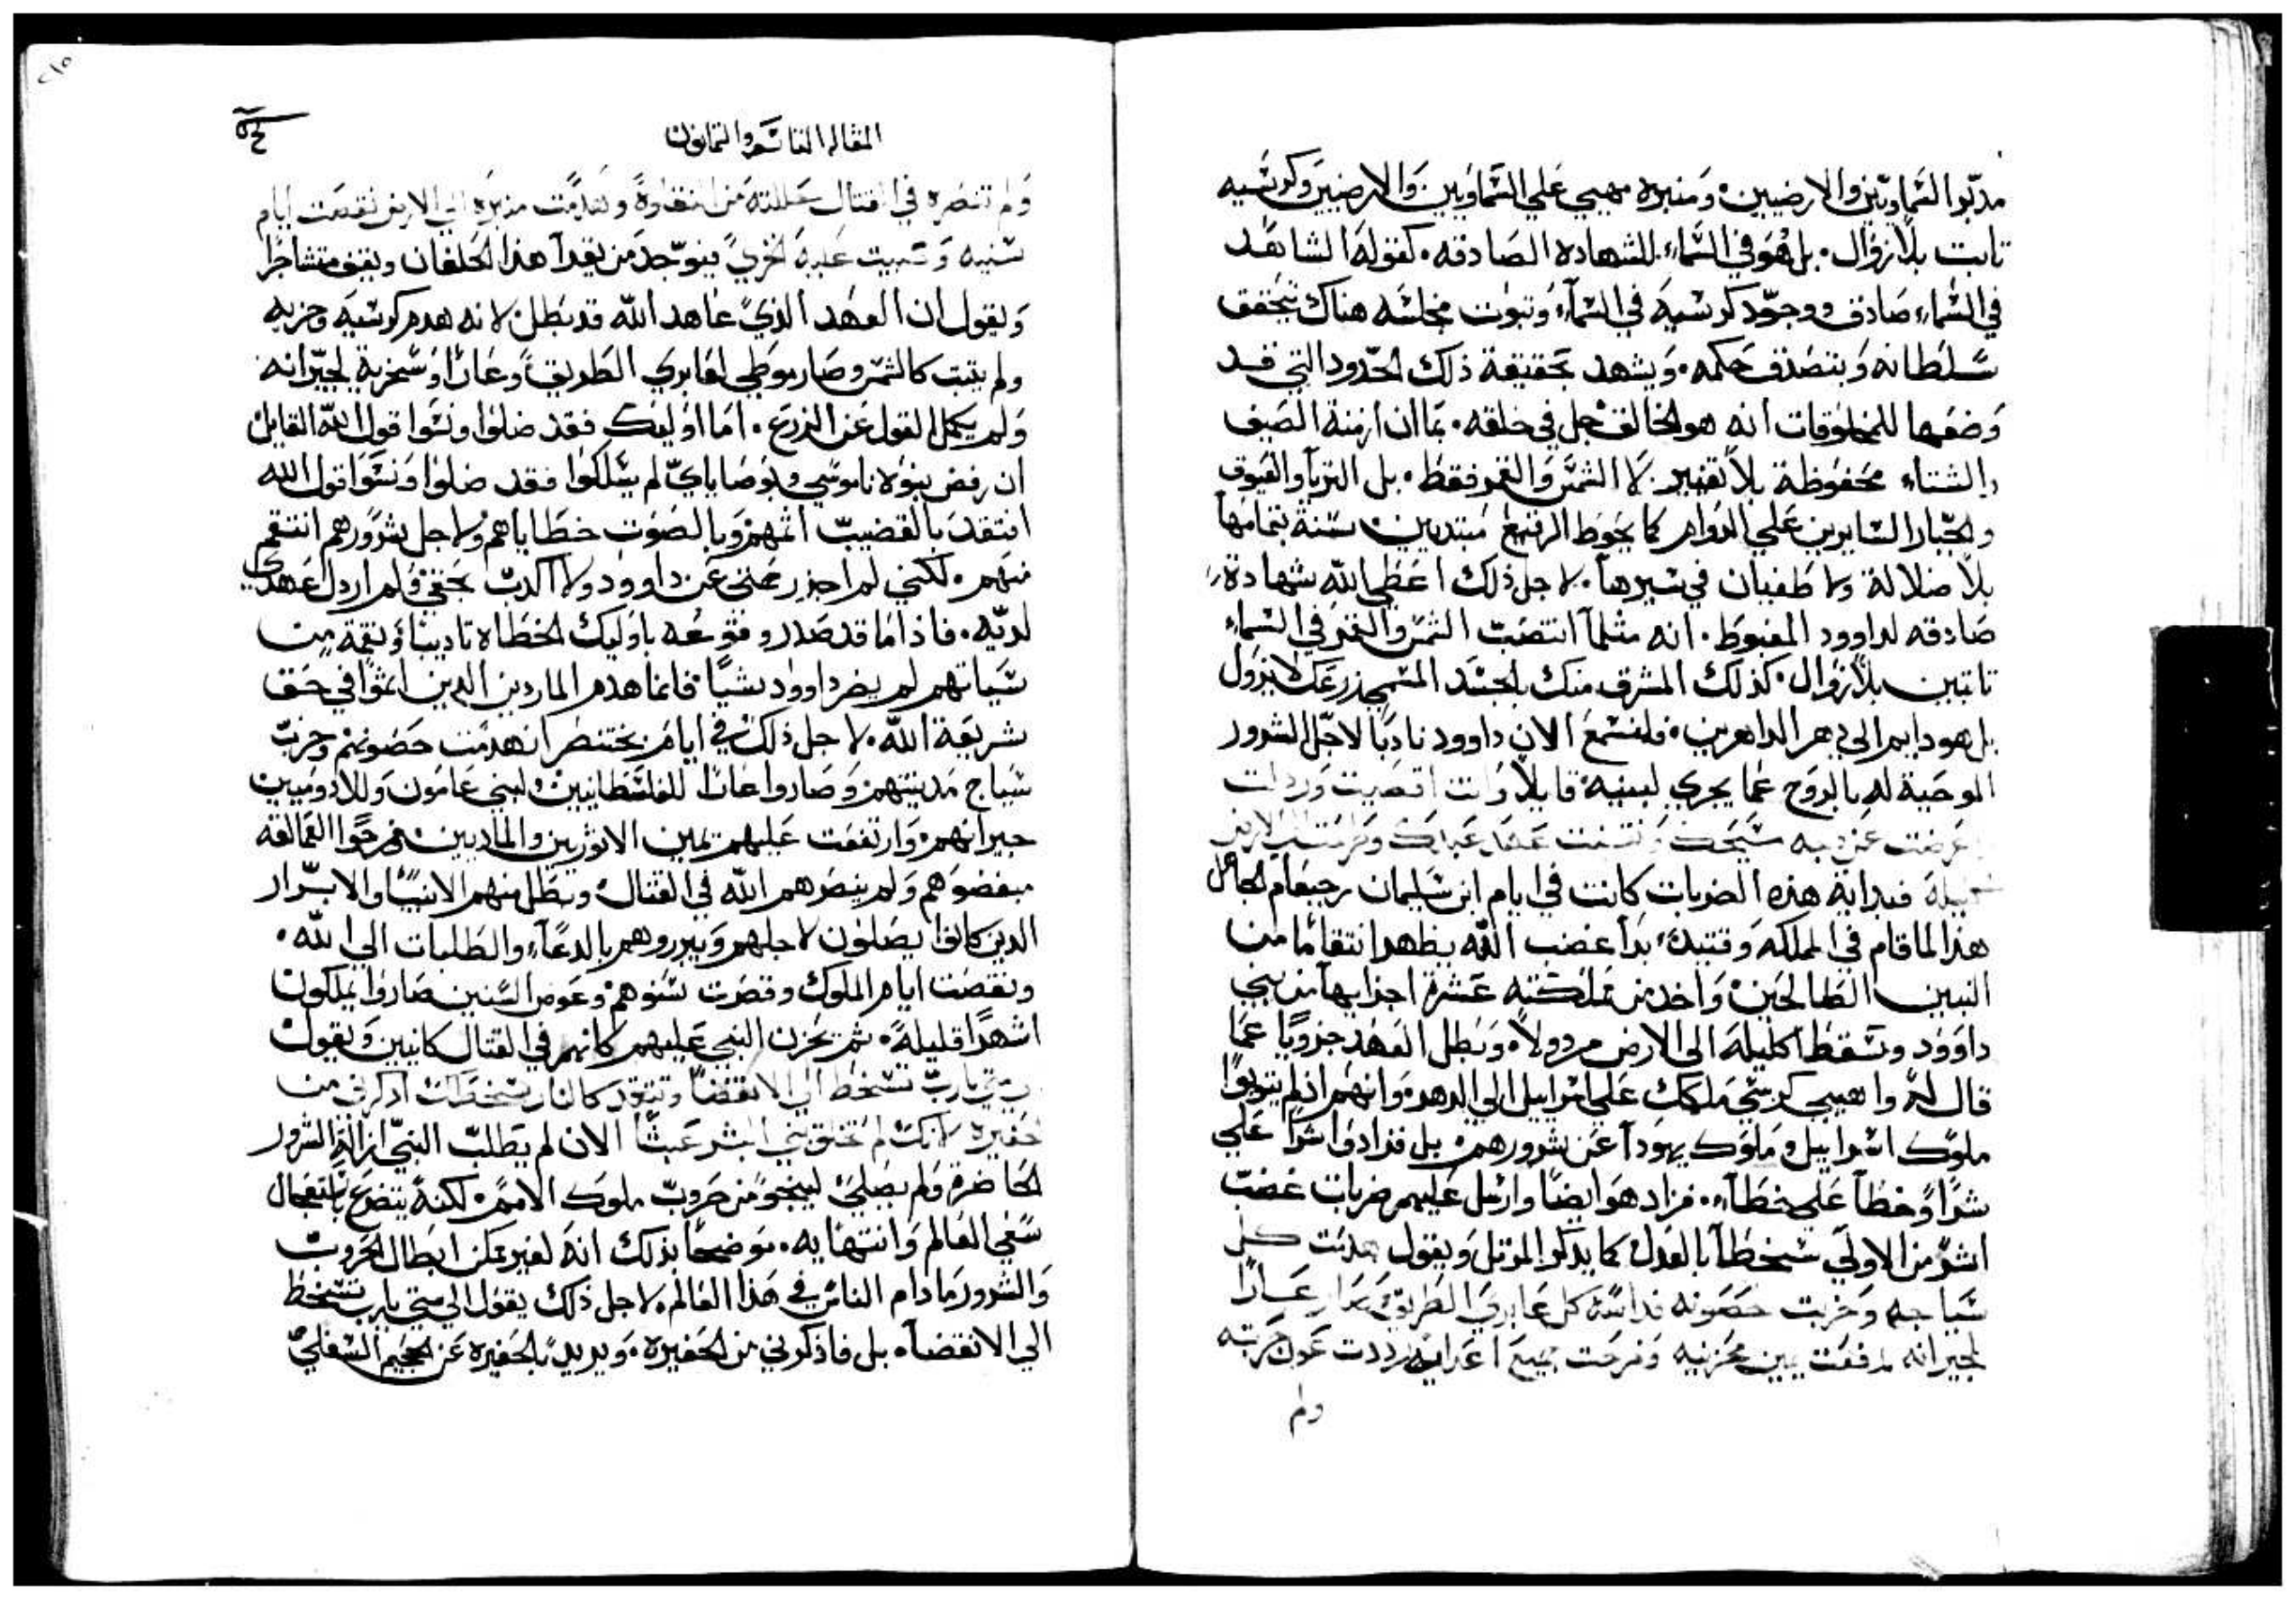 مدبّوا السماويّين والارضيين. ومنبره مهيى على السماويين والارضيين وكرسيه
ثابت بلا زوال. بل هو في السماء للشهادة الصادقه. كقوله الشاهد
في السماء صادق ووجود كرسيه في السماء. وثبوت مجلسه هناك يتحقق
سلطانه ويتصدق حكمه. ويشهد بحقيقة ذلك الحدود التي قد
وضعها للمخلوقات انه هو الخالق جل في خلقه. بما ان ازمنة الصيف
والشتاء محفوظة بلا تغيير. لا الشمس والقمر فقط. بل الثريا والعيوق
والجبار السايرين على الدوام كما يحوط الرفيع مبتديين سنة بتمامها
بلا ضلالة ولا طغيان في سيرها. لاجل ذلك اعطى الله شهادة
صادقه لداوود المغبوط. انه مثلما انتصبت الشمس والقمر في السماء
ثابتين بلا زوال. كذلك المشرق منك بالجسد المسيح زرعك لا يزول
بل هو دايم الى دهر الداهرين. فلنسمع الان داوود نادبًا لاجل الشرور
الموحية له بالروح عما يجري لبنيه. قايلا وانت اقصيت ورذلت
اعرضت عن مسيحك ونقضت عهد عبدك وطرحت الى الارض
اكليله فبداية هذه الضربات كانت في ايام ابن سليمان رحبعام الجاهل
هذا لما قام في المملكه وقتيذ بدأ غضب الله يظهر انتقامًا من
النبين الطالحين واخذ من مملكته عشرة اجزا بها من بني
داوود وسقط اكليله الى الارض مرذولاً. وبطل العهد جزويًا عما
قال له واهيى كرسي ملكك على اسراييل الى الدهر. وانهم اذ لم يتوبوا
ملوك اسراييل وملوك يهودا عن شرورهم. بل فزادوا شرًا على
شرًا وخطأ على خطأ. فزاد هو ايضًا وارسل عليهم ضربات غضب
اشرّ من الاولى سخطًا بالعدل كما يذكر المرتل ويقول هدمت كل
سياجه وخربت حصونه فداسه كل عابري الطريق صار عارًا
لجيرانه رفعت يمين محزنيه وفرحت جميع اعدايه رددت عون حربته
ولم
المقاله التاسعه والثمانون
ولم تنصره في القتال عطلته من النقاوة وهدمت منبره الى الارض نقصت ايام
سنيه وسببت عليه الخزي فيوجد من يقدا هذا الحلفان ويقف متشاجرًا
ويقول ان العهد الذي عاهد الله قد بطل. لانه هدم كرسيه وحزبه
ولم يثبت كالشمس وصار موطى لعابري الطريق وعارًا وسخرية لجيرانه
ولم يكمل القول عن الزرع. اما اوليك فقد ضلوا ونسوا قول الله القايل
ان رفض بنوه ناموسي وبوصاياي لم يسلكوا فقد ضلوا ونسوا قول الله
افتقد بالقضيب اثمهم وبالصوت خطاياهم ولاجل شرورهم انتقم
منهم. لكنني لم اجز رحمتي عن داوود ولا اكذب بحقي ولم ارذل عهدي
لديه. فاذا ما قد صدر وقوعه باوليك الخطاه تاديبًا ونقمة من
سياتهم لم يضر داوود بشيًا فانما هدم الماردين الذين اثموا في حق
شريعة الله. لاجل ذلك في ايام بختنصر انهدمت حصونهم وخرب
سياج مدينتهم وصاروا عارًا للفلسطانيين ولبني عامون وللادوميين
جيرانهم. وارتفعت عليهم يمين الاثوريين والماديين. ففرحوا العمالقه
مبغضوهم ولم ينصرهم الله في القتال وبطل منهم الانبيا والابرار
الذين كانوا يصلون لاجلهم ويبرروهم بالدعاء والطلبات الى الله.
ونقصت ايام الملوك وقصرت سنوهم وعوض السنين صاروا يملكون
اشهرًا قليلة. ثم يحزن النبي عليهم كانهم في القتال كايين ويقول
متى يارب تسخط الى الانقضا وتتقد كالنار سخطك اذكرني من
الحفيره لانك لم تخلق بني البشر عبثًا الان لم يطلب النبي ازالة الشرور
الحاضرة ولم يصلى لينجو من حروب ملوك الامم. لكنه يتضرع باستعجال
سعي العالم وانتهايه. موضحًا بذلك انه لغير ممكن ابطال الحروب
والشرور ما دام الناس في هذا العالم. لاجل ذلك يقول الى متى يارب تسخط
الى الانقضا. بل فاذكرني من الحفيره. ويريد بالحفيره عن الجحيم السفلي